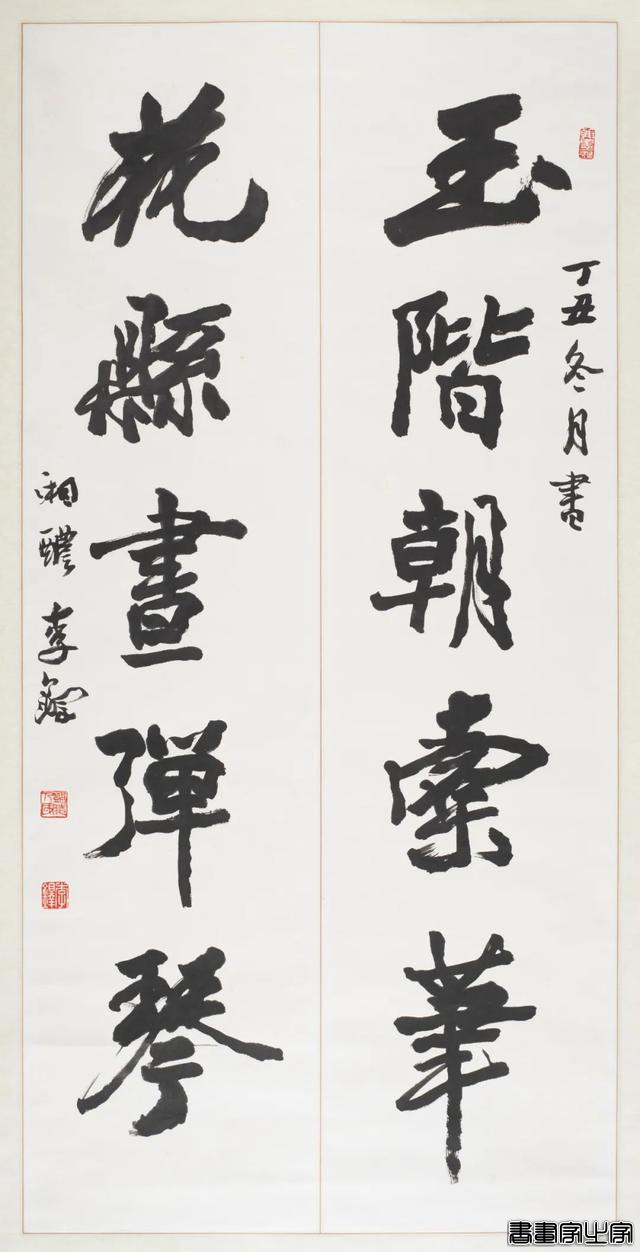 丁丑冬月書
玉階朝索筆
花縣晝彈琴
湘醴李鐸
李鐸
書畫家之家